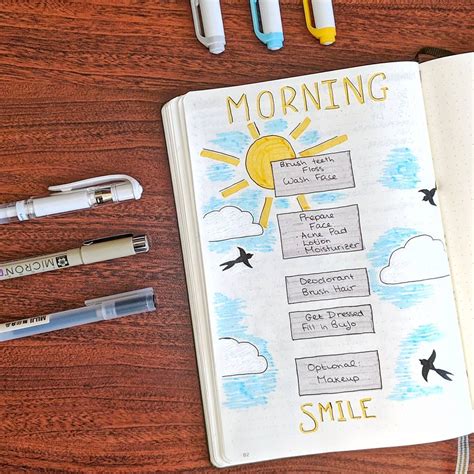 MORNING
Brush teeth
Floss
Wash Face
Prepare
Face
- Acne Pad
Lotion
Moisturizer
Deodorant
Brush Hair
Get Dressed
Fill in BuJo
Optional:
Makeup
SMILE
MICRON
MUJI